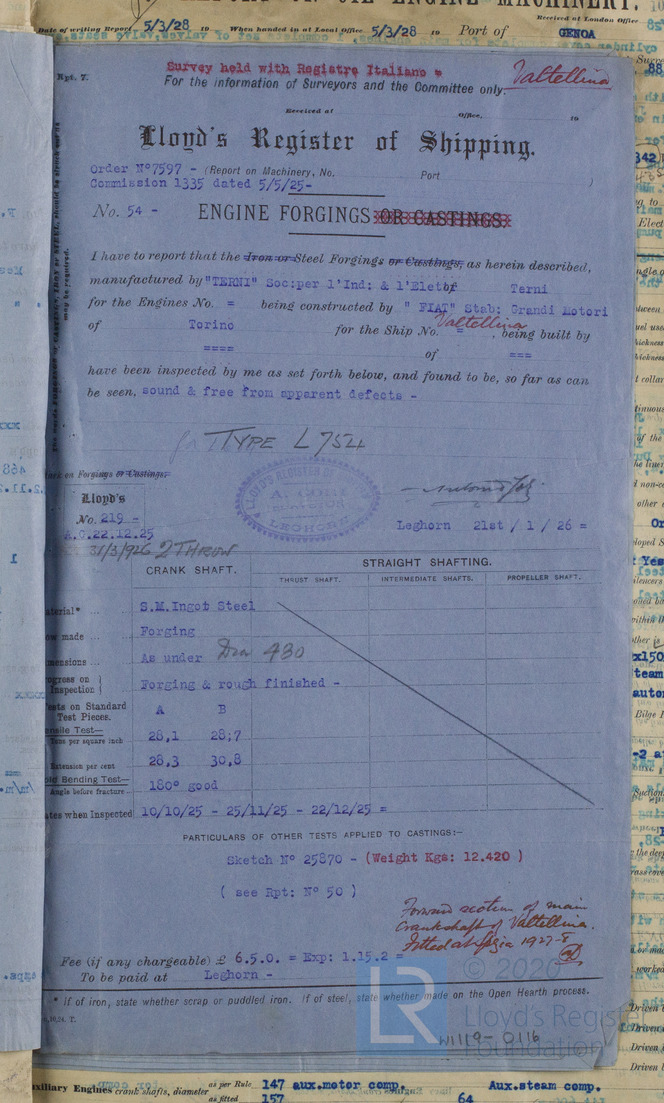 Date of writing Report 5/3/28 19 When handed in at Local Office 5/3/28 19 Port of GENOA
Received at London Office
Rpt. 7.
Survey held with Registro Italiano =
For the information of Surveyors and the Committee only.
Valtellina
Received at Office, 19
Lloyd's Register of Shipping.
Order N°7597 - (Report on Machinery, No. Port )
Commission 1335 dated 5/5/25-
No. 54 - ENGINE FORGINGS OR CASTINGS.
I have to report that the Iron or Steel Forgings or Castings, as herein described,
manufactured by "TERNI" Soc:per l'Ind: & l'Elet: of Terni
for the Engines No. = being constructed by " FIAT" Stab: Grandi Motori
of Torino for the Ship No. = Valtellina, being built by
==== of ===
have been inspected by me as set forth below, and found to be, so far as can
be seen, sound & free from apparent defects -
TYPE L 754
on Forgings or Castings.
Lloyd's
No. 219 -
A.C.22.12.25
31/3/926 2 THROW
LLOYD'S REGISTER OF
LEGHORN
Leghorn 21st / 1 / 26 =
CRANK SHAFT. STRAIGHT SHAFTING.
THRUST SHAFT. INTERMEDIATE SHAFTS. PROPELLER SHAFT.
aterial* ... S.M.Ingot Steel
ow made ... Forging
mensions ... As under Dia 430
ogress on Inspection } Forging & rough finished -
ests on Standard Test Pieces. A B
ensile Test— Tons per square inch 28,1 28;7
Extension per cent 28,3 30,8
ld Bending Test— Angle before fracture 180° good
ates when Inspected 10/10/25 - 25/11/25 - 22/12/25 =
PARTICULARS OF OTHER TESTS APPLIED TO CASTINGS:—
Sketch N° 25870 - (Weight Kgs: 12.420 )
( see Rpt: N° 50 )
Forward section of main
Crankshaft of Valtellina.
Fitted at 1927-8
Fee (if any chargeable) £ 6.5.0. = Exp: 1.15.2 =
To be paid at Leghorn -
© 2020
* If of iron, state whether scrap or puddled iron. If of steel, state whether made on the Open Hearth process.
LR
Lloyd's Register
Foundation
W1119-0116
uxiliary Engines crank shafts, diameter as per Rule 147 aux.motor comp. Aux.steam comp.
as fitted 157 64